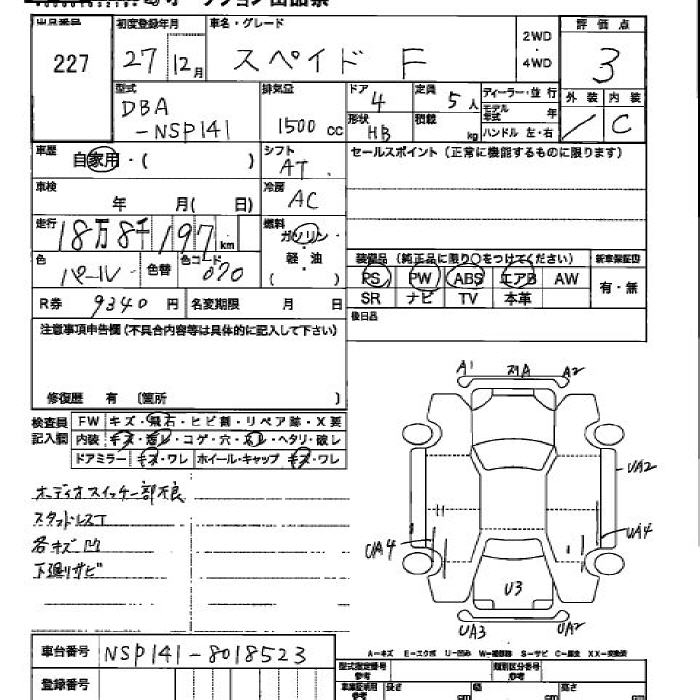 出品番号 初度登録年月 車名・グレード 評価点
227 27 12月 スペイド F 2WD・4WD 3
型式 排気量 ドア 定員 ディーラー・並行 外装 内装
DBA 4 5人 モデル年式 年 / C
-NSP141 1500cc 形状 HB 積載 kg ハンドル 左・右
車歴 自家用・( ) シフト AT セールスポイント(正常に機能するものに限ります)
車検 年 月( 日) 冷房 AC
走行 18万8千197km 燃料 ガソリン・軽・油( )
色 パール 色替 色コード 070 装備品(純正品に限り○をつけてください) 新車保証書
PS PW ABS エアB AW 有・無
R券 9340円 名変期限 月 日 SR ナビ TV 本革
注意事項申告欄(不具合内容等は具体的に記入して下さい) 後日品
修復歴 有 〔箇所 〕
検査員記入欄 FW キズ・飛石・ヒビ割・リペア跡・X要
内装 キズ・汚レ・コゲ・穴・スレ・ヘタリ・破レ
ドアミラー キズ・ワレ ホイール・キャップ キズ・ワレ
オーディオスイッチ一部不良
スタッドレスT
各キズ凹
下廻リサビ
A1 スリA A2
UA2
UA4 UA4
U3
UA3 UA2
A-キズ E-エクボ U-凹み W-補修跡 S-サビ C-腐食 XX-交換済
車台番号 NSP141-8018523 型式指定番号 類別区分番号
登録番号 長さ 幅 高さ